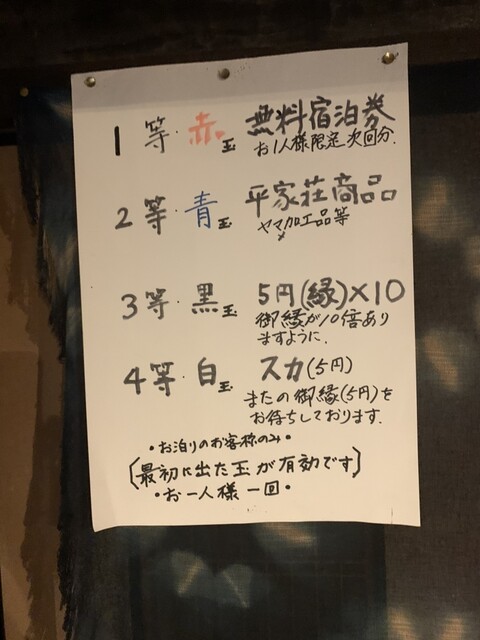 1等・赤玉 無料宿泊券
お1人様限定 次回分.
2等・青玉 平家荘商品
ヤマメ加工品等
3等・黒玉 5円(縁)×10
御縁が10倍あり
ますように.
4等・白玉 スカ(5円)
またの御縁(5円)を
お待ちしております.
・お泊りのお客様のみ・
[最初に出た玉が有効です]
・お一人様 一回・